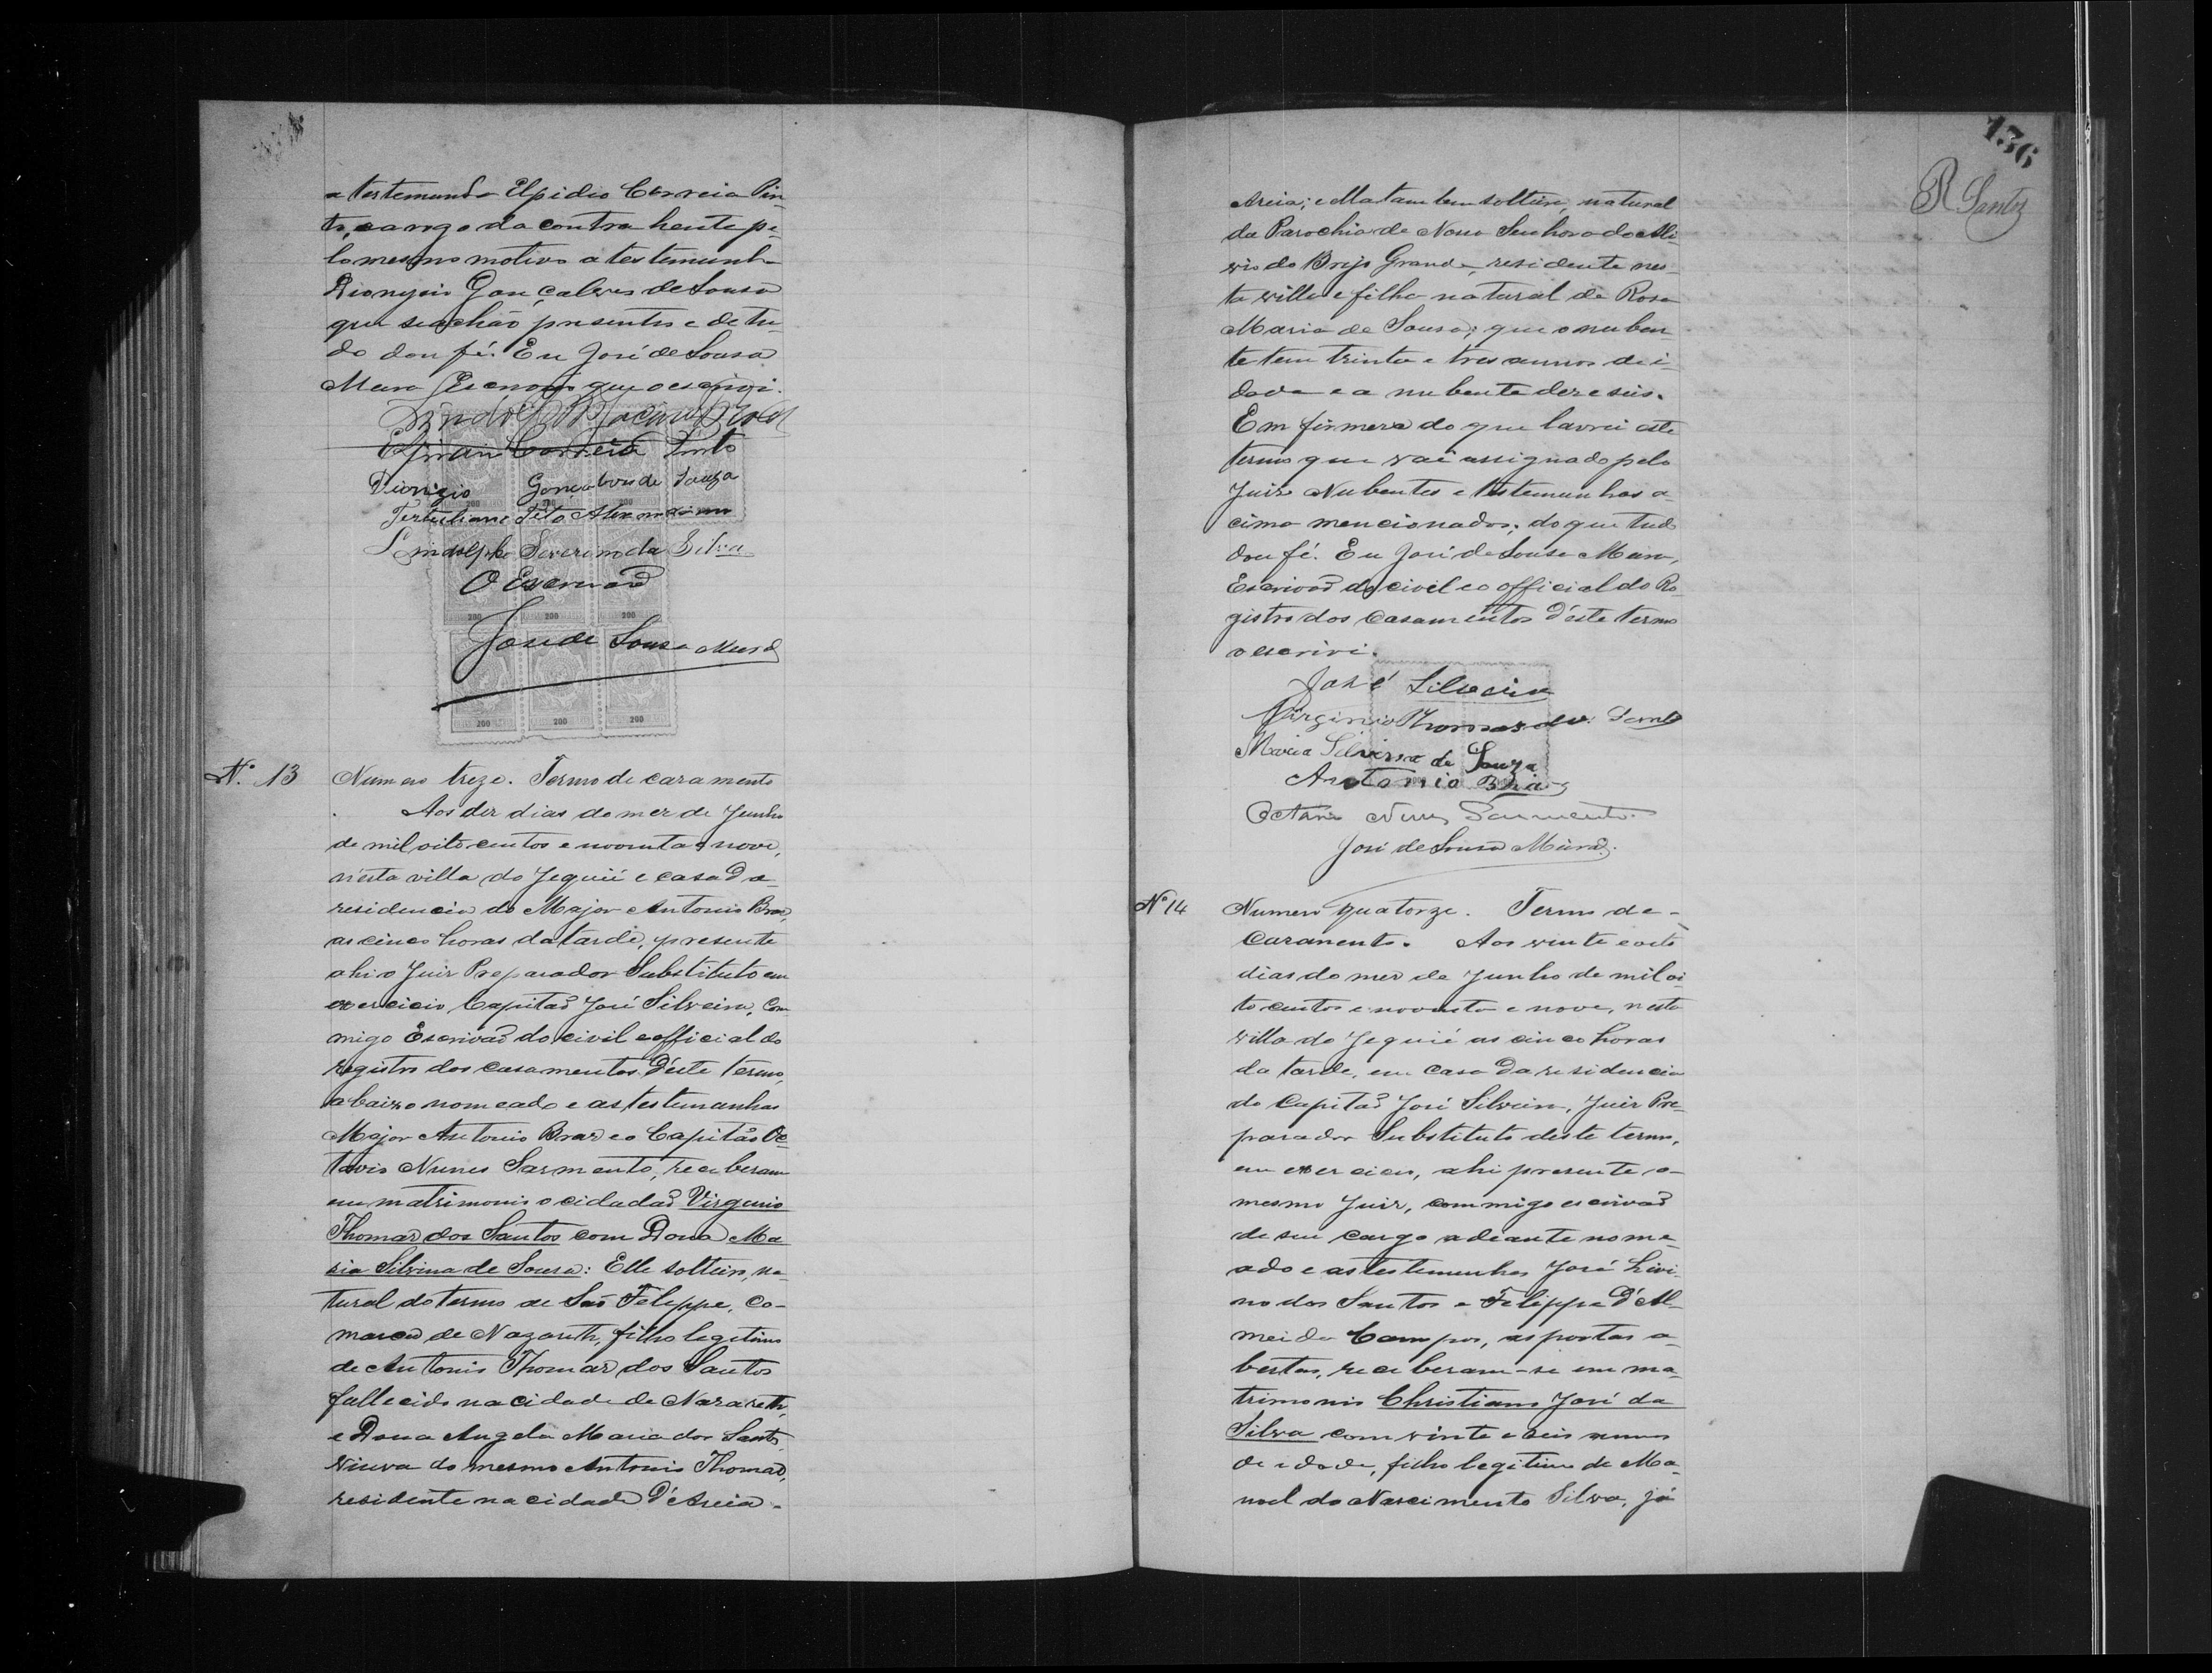 a testemunha Elpidio Correia Pin-
to, e a rogo da contrahente pe-
lo mesmo motivo a testemunha
Dionysio Gonçalves de Sousa
que se achão presentes e de tu-
do dou fé. Eu José de Sousa
Mura Escrivão que o escrevi.
Correia Pinto
Dionizio Gonçalves de Souza
Tertuliano Tito
Lindolpho Severino da Silva
O Escrivão
José de Sousa Mura
200 200 200
200 200 200
200 200 200
Nº 13 Numero treze. Termo de casamento
Aos dez dias do mez de Junho
de mil oito centos e noventa e nove,
n'esta villa do Jequié e casa da
residencia do Major Antonio Braz,
as cinco horas da tarde, presente
ahi o Juiz Preparador Substituto em
exercicio Capitaõ José Silveira, Com
migo Escrivaõ do civil e official do
registro dos casamentos d'este termo,
abaixo nomeado e as testemunhas
Major Antonio Braz e o Capitão Oc-
tavio Nunes Sarmento, receberam
em matrimonio o cidadaõ Virginio
Thomaz dos Santos com Dona Ma
ria Silvina de Sousa: Elle solteiro, na-
tural do termo de Saõ Felippe, Co-
marca de Nazareth, filho legitimo
de Antonio Thomaz dos Santos
fallecido na cidade de Nazareth,
e Dona Angela Maria dos Santos,
Viuva do mesmo Antonio Thomaz,
residente na cidade d'Areia.
136
R Santos
Areia; e Ella tambem solteira, natural
da Parochia de Nossa Senhora do Alli-
vio do Brejo Grande, residente nes-
ta villa e filha natural de Rosa
Maria de Sousa; que o nuben-
te tem trinta e tres annos de i-
dade e a nubente dezeseis.
Em firmeza do que lavrei este
termo que vai assignado pelo
Juiz Nubentes e testemunhas a-
cima mencionados; do que tudo
dou fé. Eu José de Sousa Mura,
Escrivaõ do civil e o official do Re-
gistro dos Casamentos d'este termo
o escrivi.
José Silveira
Virginio Thomaz dos Santos
Maria Silvina de Souza
Antonio Braz
Octavio Nunes Sarmento
José de Sousa Mura
Nº 14 Numero quatorze. Termo de-
Casamento. Aos vinte e oito
dias do mez de Junho de mil oi-
to centos e noventa e nove, nesta
villa do Jequié as cinco horas
da tarde, em casa da residencia
do Capitaõ José Silveira, Juiz Pre-
parador Substituto deste termo,
em exercicio, ahi presente o
mesmo Juiz, commigo escrivaõ
de seu cargo adeante nome-
ado e as testemunhas José Livi-
no dos Santos e Felippe d'Al-
meida Campos, as portas a-
bertas, receberam-se em ma-
trimonio Christiano José da
Silva com vinte e seis annos
de idade, filho legitimo de Ma-
noel do Nascimento Silva, já